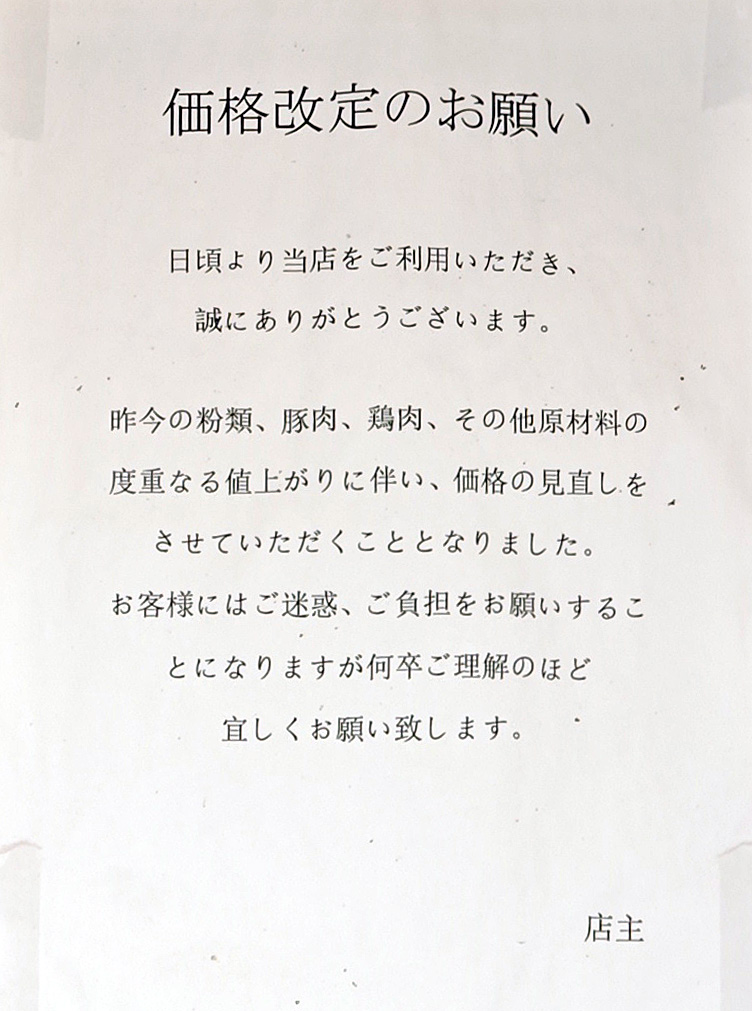 価格改定のお願い
日頃より当店をご利用いただき、
誠にありがとうございます。
昨今の粉類、豚肉、鶏肉、その他原材料の
度重なる値上がりに伴い、価格の見直しを
させていただくこととなりました。
お客様にはご迷惑、ご負担をお願いするこ
とになりますが何卒ご理解のほど
宜しくお願い致します。
店主